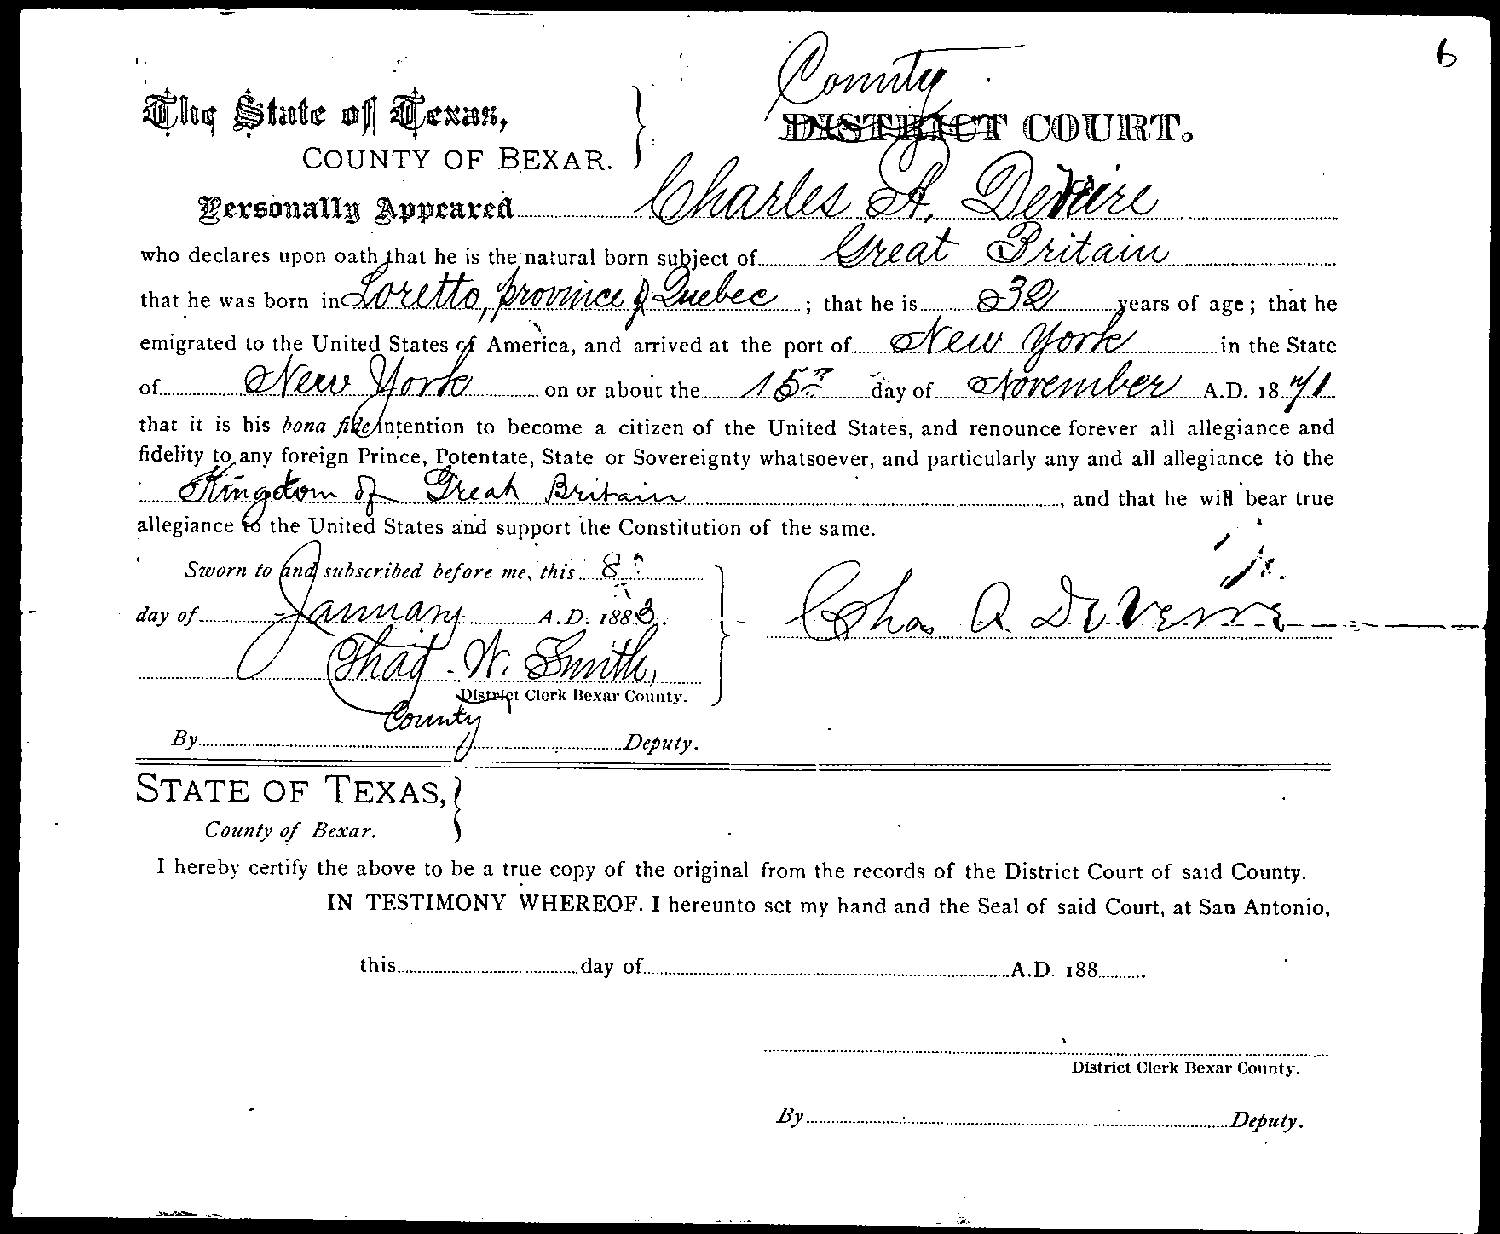 6
County
The State of Texas, } DISTRICT COURT.
COUNTY OF BEXAR.
Personally Appeared Charles A. DeVere
who declares upon oath that he is the natural born subject of Great Britain
that he was born in Loretto, province of Quebec ; that he is 32 years of age ; that he
emigrated to the United States of America, and arrived at the port of New York in the State
of New York on or about the 15 day of November A.D. 1871
that it is his bona fide intention to become a citizen of the United States, and renounce forever all allegiance and
fidelity to any foreign Prince, Potentate, State or Sovereignty whatsoever, and particularly any and all allegiance to the
Kingdom of Great Britain , and that he will bear true
allegiance to the United States and support the Constitution of the same.
Sworn to and subscribed before me, this 8
day of January A.D. 1883.
Jr.
Chas A. DeVere
Thad. W. Smith,
District Clerk Bexar County.
County
By Deputy.
STATE OF TEXAS, }
County of Bexar.
I hereby certify the above to be a true copy of the original from the records of the District Court of said County.
IN TESTIMONY WHEREOF, I hereunto set my hand and the Seal of said Court, at San Antonio,
this day of A.D. 188
District Clerk Bexar County.
By Deputy.